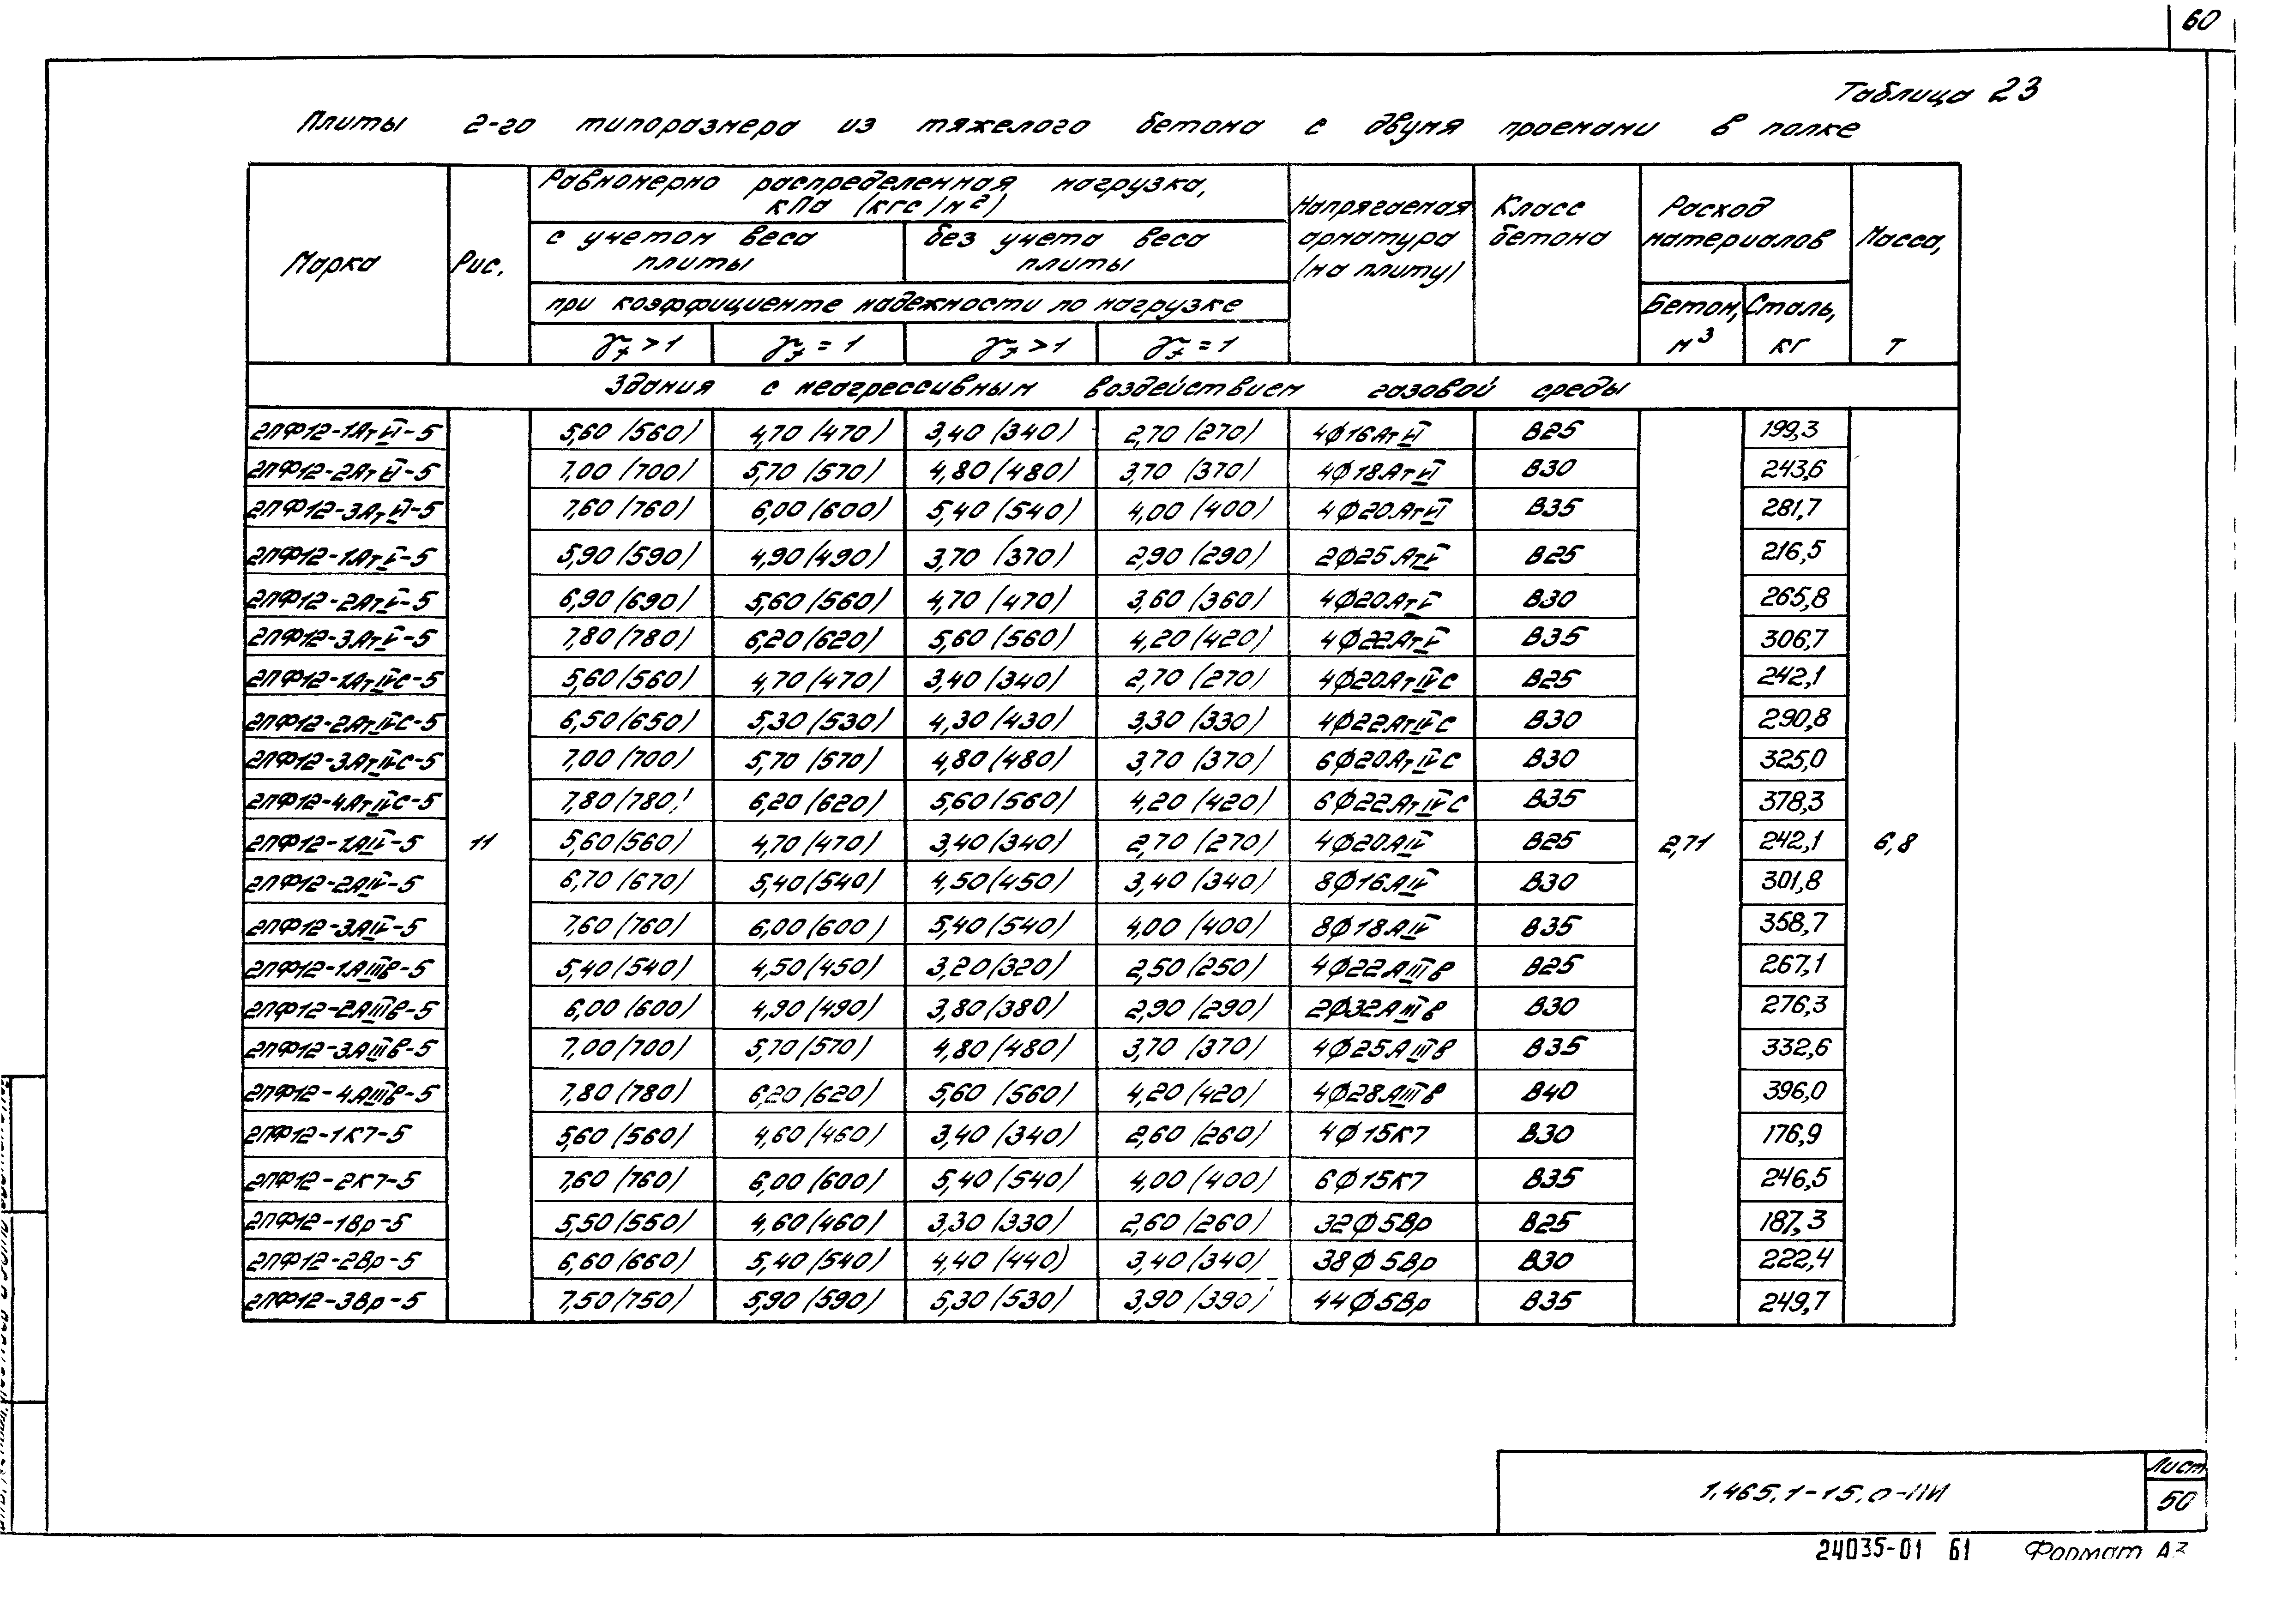 60
Таблица 23
Плиты 2-го типоразмера из тяжелого бетона с двумя проемами в полке
Марка
Рис.
Равномерно распределенная нагрузка,
кПа (кгс/м²)
с учетом веса
плиты
без учета веса
плиты
при коэффициенте надежности по нагрузке
γf >1 γf = 1 γf >1 γf = 1
Напрягаемая
арматура
(на плиту)
Класс
бетона
Расход
материалов
Бетон,
м³
Сталь,
кг
Масса,
т
Здания с неагрессивным воздействием газовой среды
2ПФ12-1АтVI-5 5,60 (560) 4,70 (470) 3,40 (340) 2,70 (270) 4Ф16АтVI В25 199,3
2ПФ12-2АтVI-5 7,00 (700) 5,70 (570) 4,80 (480) 3,70 (370) 4Ф18АтVI В30 243,6
2ПФ12-3АтVI-5 7,60 (760) 6,00 (600) 5,40 (540) 4,00 (400) 4Ф20АтVI В35 281,7
2ПФ12-1АтV-5 5,90 (590) 4,90 (490) 3,70 (370) 2,90 (290) 2Ф25АтV В25 216,5
2ПФ12-2АтV-5 6,90 (690) 5,60 (560) 4,70 (470) 3,60 (360) 4Ф20АтV В30 265,8
2ПФ12-3АтV-5 7,80 (780) 6,20 (620) 5,60 (560) 4,20 (420) 4Ф22АтV В35 306,7
2ПФ12-1АтIVС-5 5,60 (560) 4,70 (470) 3,40 (340) 2,70 (270) 4Ф20АтIVС В25 242,1
2ПФ12-2АтIVС-5 6,50 (650) 5,30 (530) 4,30 (430) 3,30 (330) 4Ф22АтIVС В30 290,8
2ПФ12-3АтIVС-5 7,00 (700) 5,70 (570) 4,80 (480) 3,70 (370) 6Ф20АтIVС В30 325,0
2ПФ12-4АтIVС-5 7,80 (780) 6,20 (620) 5,60 (560) 4,20 (420) 6Ф22АтIVС В35 378,3
2ПФ12-1АIV-5 11 5,60 (560) 4,70 (470) 3,40 (340) 2,70 (270) 4Ф20АIV В25 2,71 242,1 6,8
2ПФ12-2АIV-5 6,70 (670) 5,40 (540) 4,50 (450) 3,40 (340) 8Ф16АIV В30 301,8
2ПФ12-3АIV-5 7,60 (760) 6,00 (600) 5,40 (540) 4,00 (400) 8Ф18АIV В35 358,7
2ПФ12-1АIIIв-5 5,40 (540) 4,50 (450) 3,20 (320) 2,50 (250) 4Ф22АIIIв В25 267,1
2ПФ12-2АIIIв-5 6,00 (600) 4,90 (490) 3,80 (380) 2,90 (290) 2Ф32АIIIв В30 276,3
2ПФ12-3АIIIв-5 7,00 (700) 5,70 (570) 4,80 (480) 3,70 (370) 4Ф25АIIIв В35 332,6
2ПФ12-4АIIIв-5 7,80 (780) 6,20 (620) 5,60 (560) 4,20 (420) 4Ф28АIIIв В40 396,0
2ПФ12-1К7-5 5,60 (560) 4,60 (460) 3,40 (340) 2,60 (260) 4Ф15К7 В30 176,9
2ПФ12-2К7-5 7,60 (760) 6,00 (600) 5,40 (540) 4,00 (400) 6Ф15К7 В35 246,5
2ПФ12-1Вр-5 5,50 (550) 4,60 (460) 3,30 (330) 2,60 (260) 32Ф5Вр В25 187,3
2ПФ12-2Вр-5 6,60 (660) 5,40 (540) 4,40 (440) 3,40 (340) 38Ф5Вр В30 222,4
2ПФ12-3Вр-5 7,50 (750) 5,90 (590) 5,30 (530) 3,90 (390) 44Ф5Вр В35 249,7
1.465.1-15.0-ПИ
Лист
50
24035-01 61 Формат А3